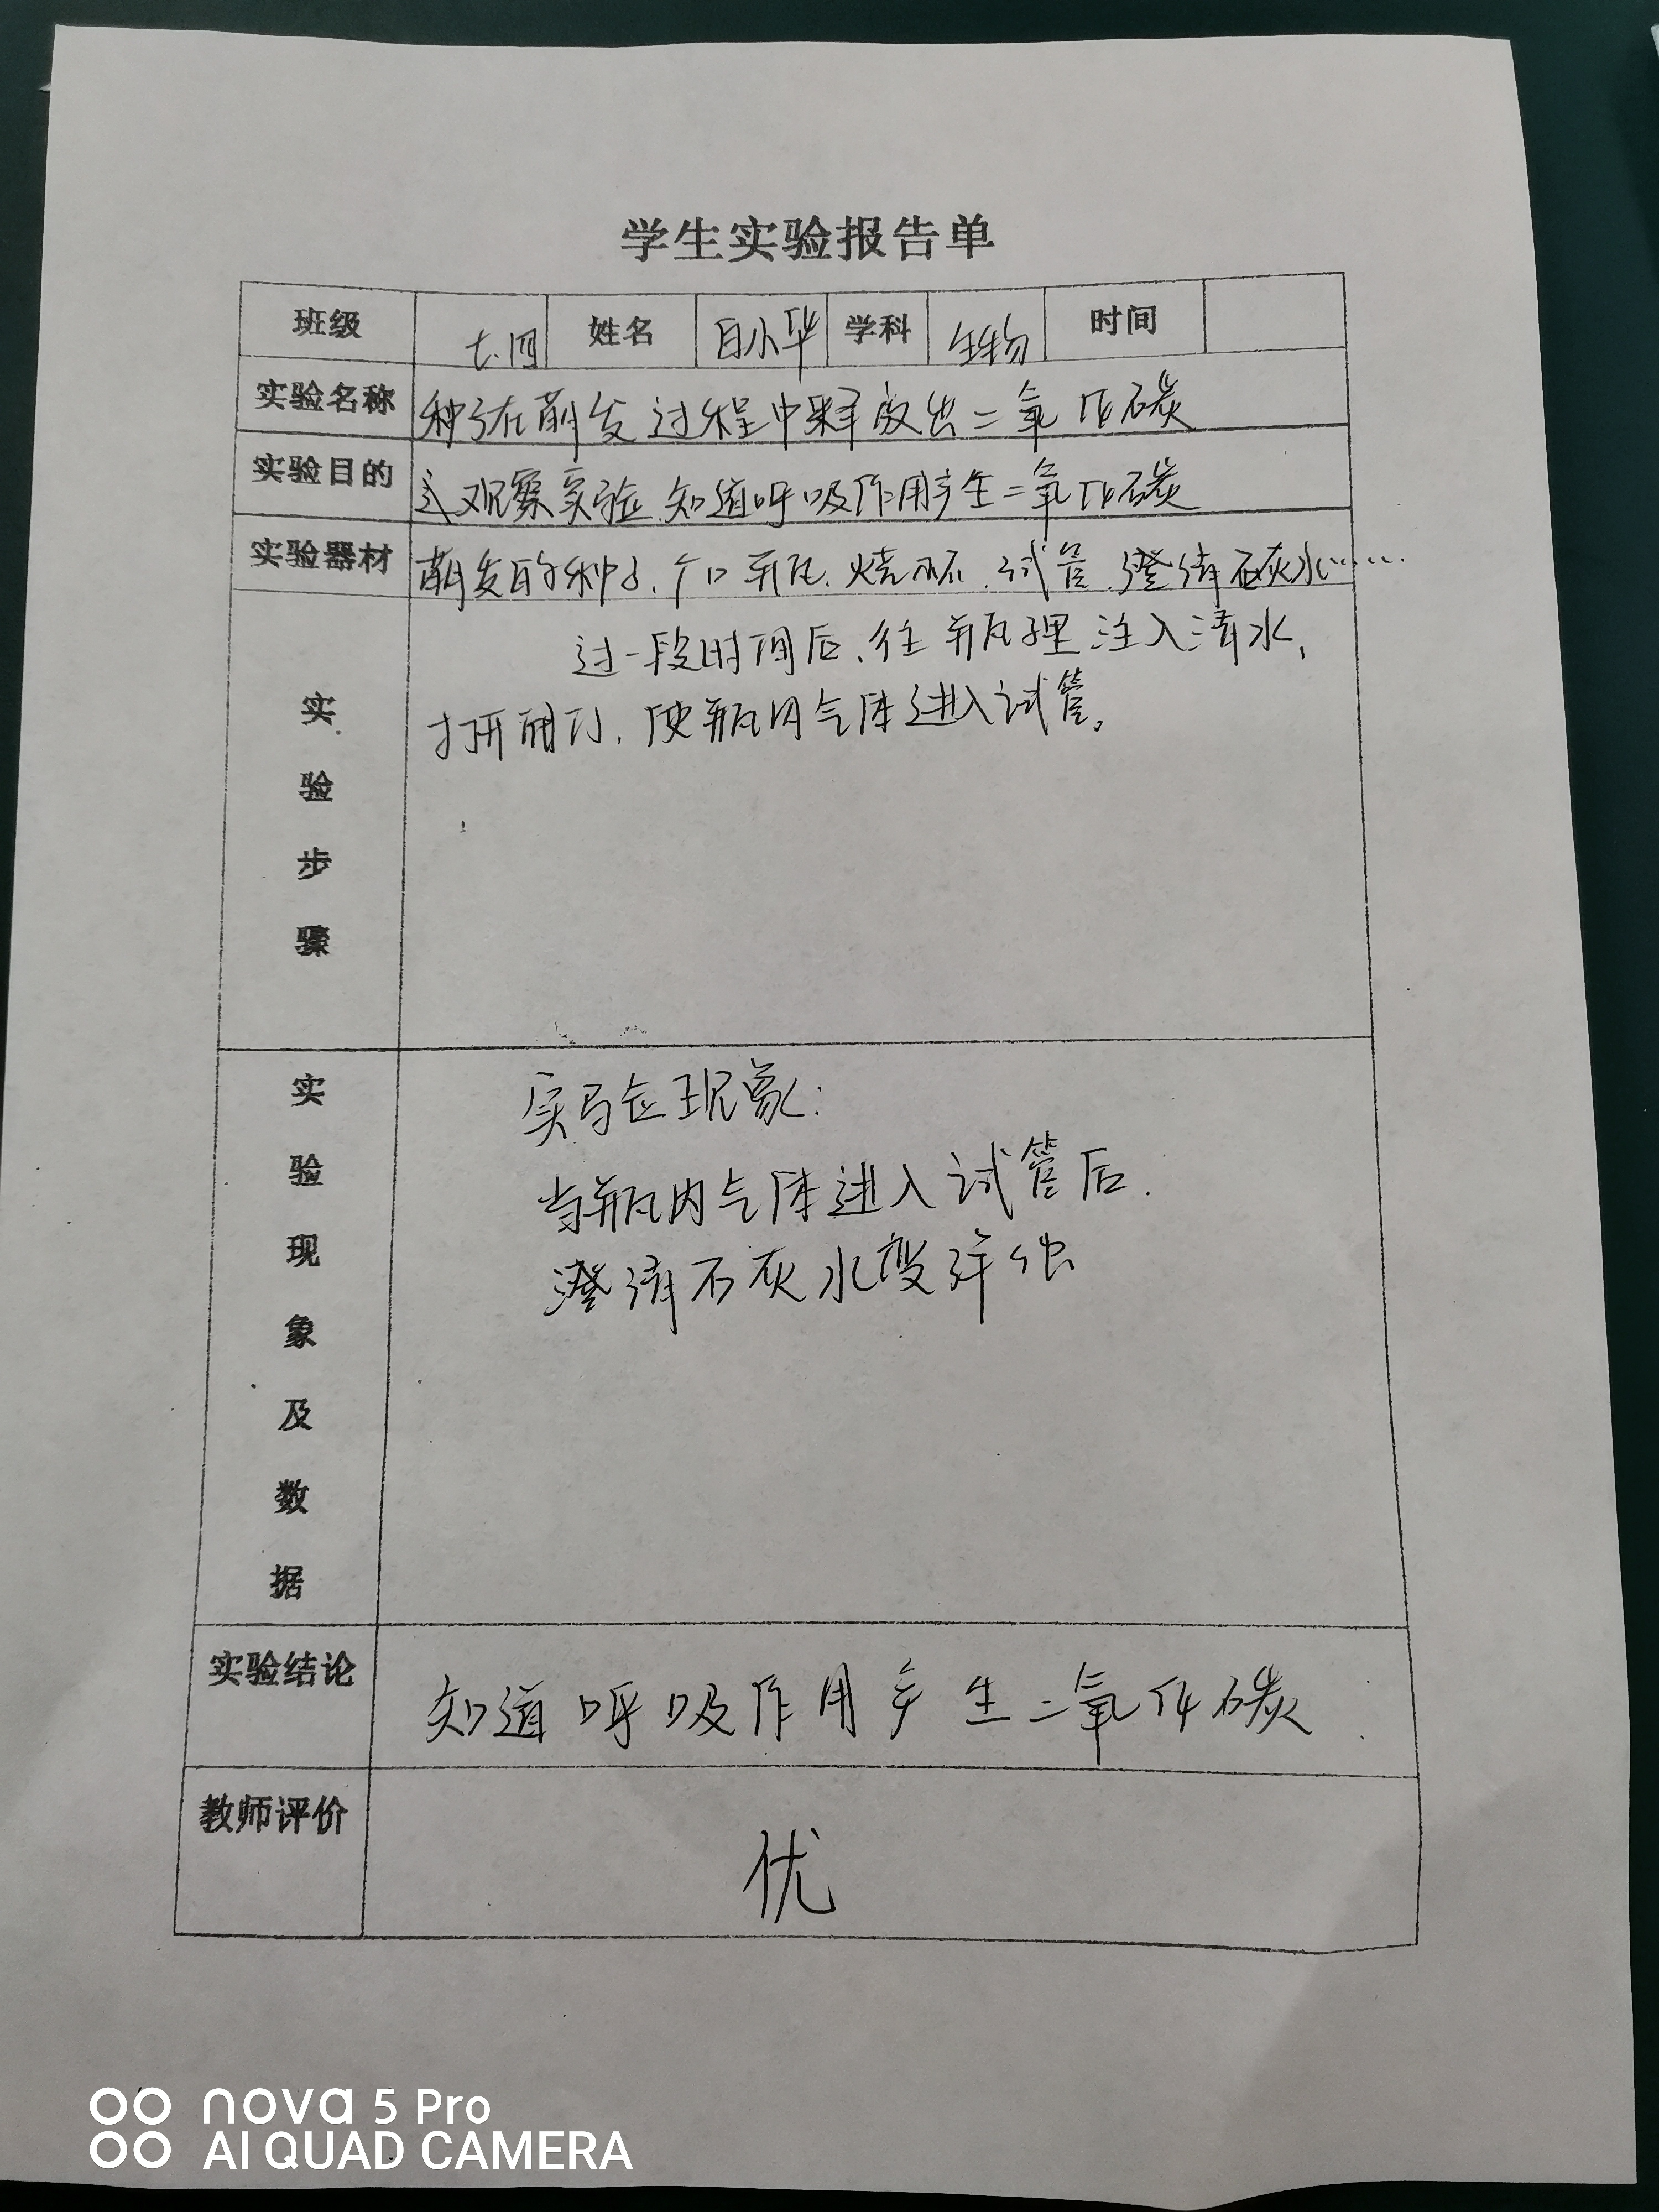 学生实验报告单
班级 七.四 姓名 白小华 学科 生物 时间
实验名称 种子在萌发过程中释放出二氧化碳
实验目的 观察实验.知道呼吸作用产生二氧化碳
实验器材 萌发的种子、广口瓶.烧杯.试管.澄清石灰水……
实验步骤 过一段时间后、往瓶里注入清水,
打开阀门,使瓶内气体进入试管。
实验现象及数据 实验现象:
当瓶内气体进入试管后.
澄清石灰水变浑浊
实验结论 知道呼吸作用产生二氧化碳.
教师评价 优
nova 5 Pro
AI QUAD CAMERA